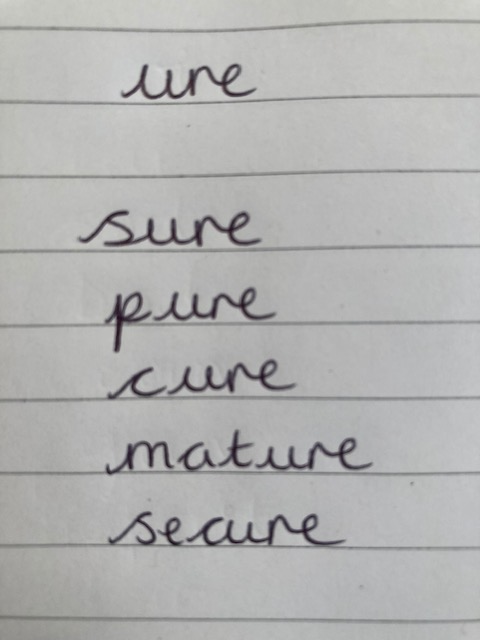 ure
sure
pure
cure
mature
secure